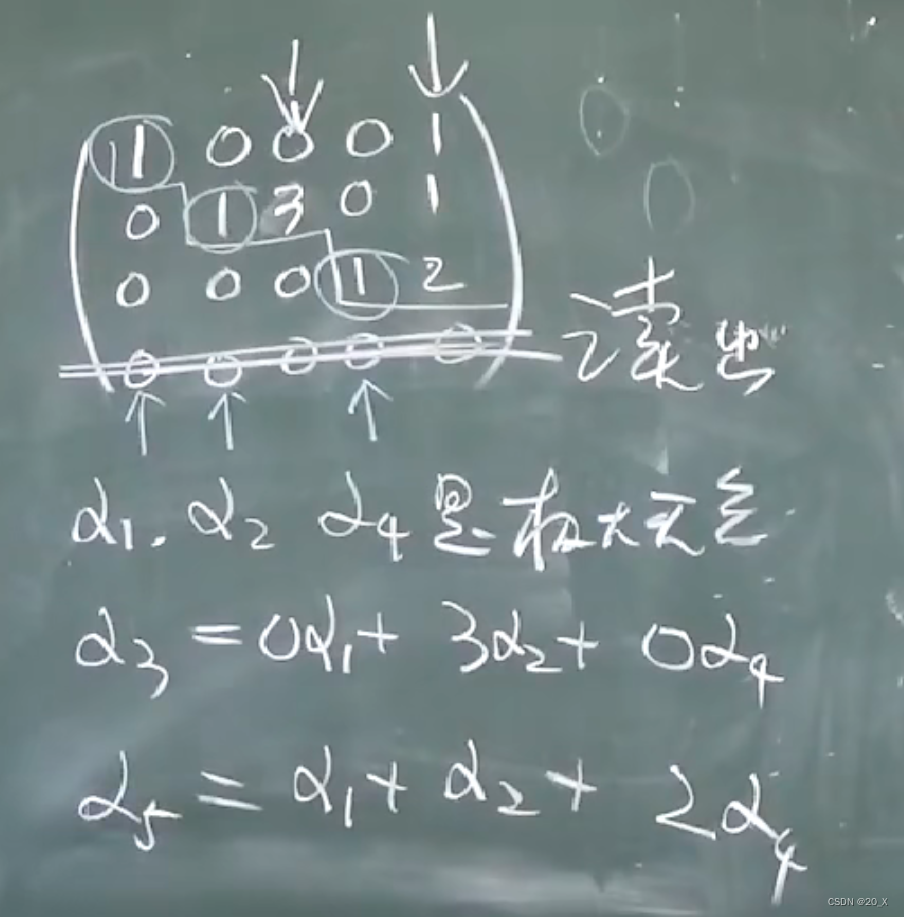 1 0 0 0 1
0 1 3 0 1
0 0 0 1 2
0 0 0 0 0
读出
α1. α2 α4 是极大无关
α3 = 0α1 + 3α2 + 0α4
α5 = α1 + α2 + 2α4
CSDN @20_X